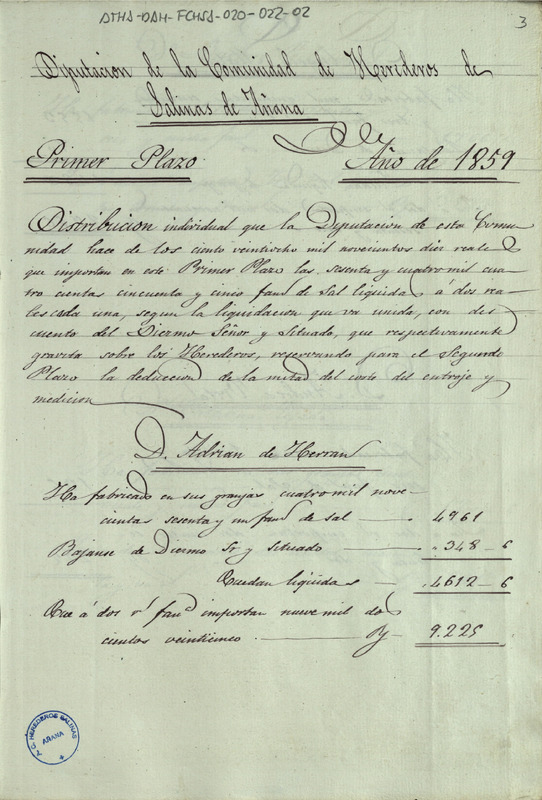 ATHA-DAH-FCHSA-020-022-02
3
Diputacion de la Comunidad de Herederos de
Salinas de Añana
Primer Plazo
Año de 1859
Distribucion individual que la Diputacion de esta Comu-
nidad hace de los ciento veintiocho mil novecientos diez reales
que importan en este Primer Plazo las sesenta y cuatro mil cua-
tro cientas cincuenta y cinco fans de Sal liquidas á dos rea-
les cada una, segun la liquidacion que va unida, con des-
cuento del Diezmo Señor y Situado, que respectivamente
gravita sobre los Herederos, reservando para el Segundo
Plazo la deduccion de la mitad del costo del entroje y
medicion
D. Adrian de Herran
Ha fabricado en sus granjas cuatro mil nove-
cientas sesenta y un fans de sal 4961
Bajanse de Diezmo Sr y situado 348-6
Quedan liquidas 4612-6
Que á dos rs fand importan nueve mil dos
cientos veinticinco 9.225
C. HEREDEROS SALINAS
AÑANA